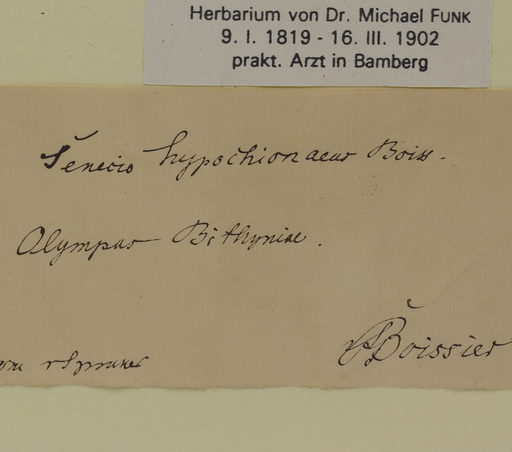 Herbarium von Dr. Michael FUNK
9. I. 1819 - 16. III. 1902
prakt. Arzt in Bamberg
Senecio hypochionaeus Boiss.
Olympus Bithyniae.
Boissier